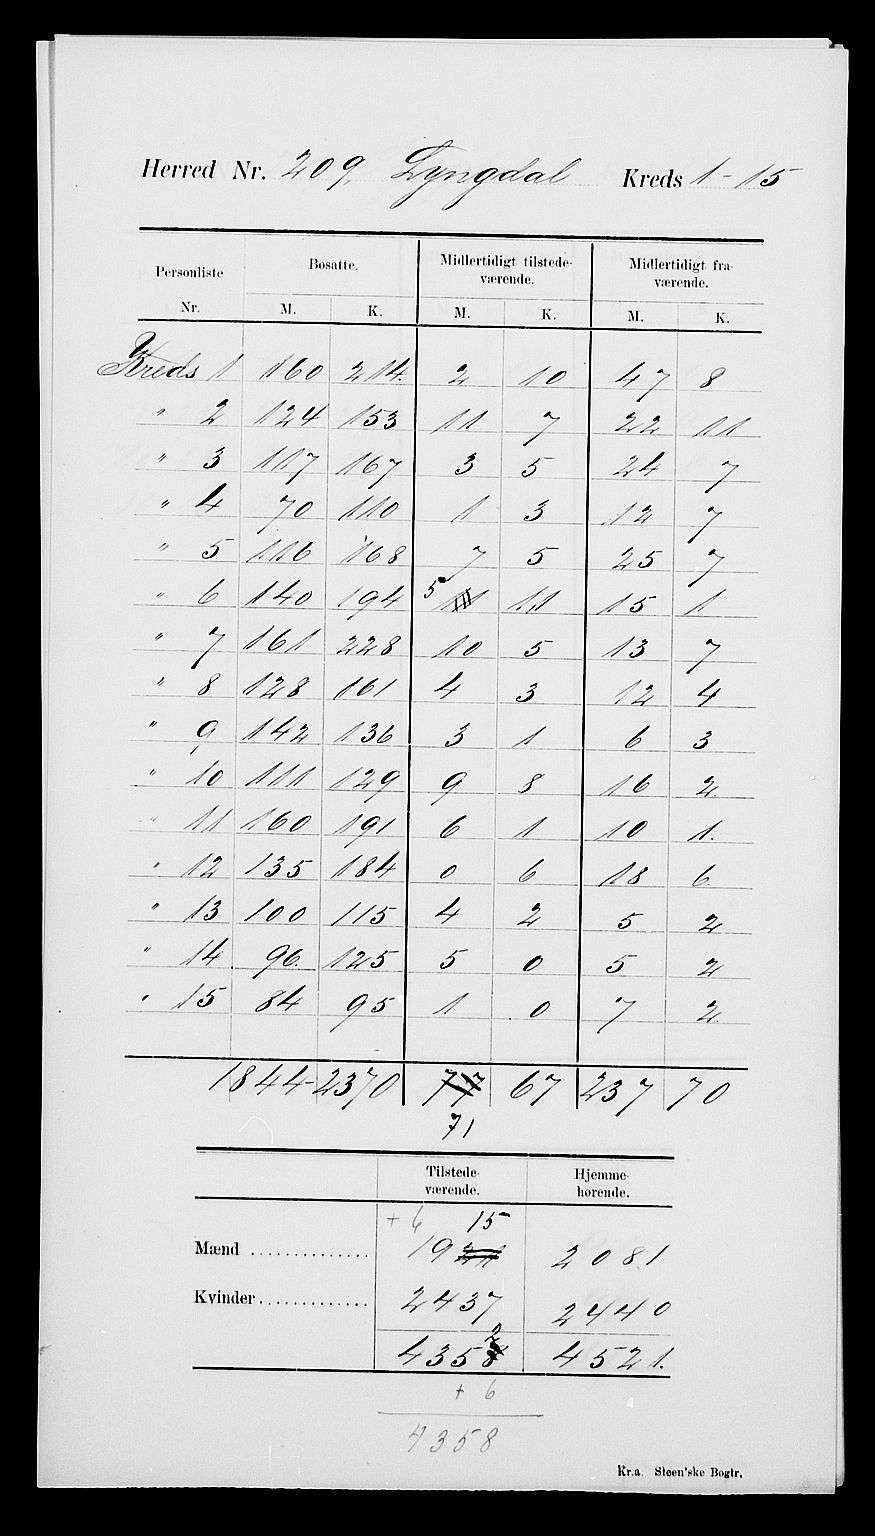 Herred Nr. 209. Lyngdal Kreds 1-15
Personliste Nr. Bosatte. Midlertidigt tilstede-værende. Midlertidigt fra-værende.
M. K. M. K. M. K.
Kreds 1 160 214. 2 10 47 8
" 2 124 153 11 7 22 11
" 3 117 167 3 5 24 7
" 4 70 110 1 3 12 7
" 5 116 168 7 5 25 7
" 6 140 194 5 11 11 15 1
" 7 161 228 10 5 13 7
" 8 128 161 4 3 12 4
" 9 142 136 3 1 6 3
" 10 111 129 9 8 16 2
" 11 160 191 6 1 10 1.
" 12 135 184 0 6 18 6
" 13 100 115 4 2 5 2
" 14 96. 125 5 0 5 2
" 15 84 95 1 0 7 2
1844 2370 77 67 237 70
71
Tilstede-værende. Hjemme-hørende.
+ 6 15
Mænd .............. 1921 2081
Kvinder ............. 2437 2440
2
4358 4521.
+ 6
4358
Kr.a. Steen'ske Bogtr.